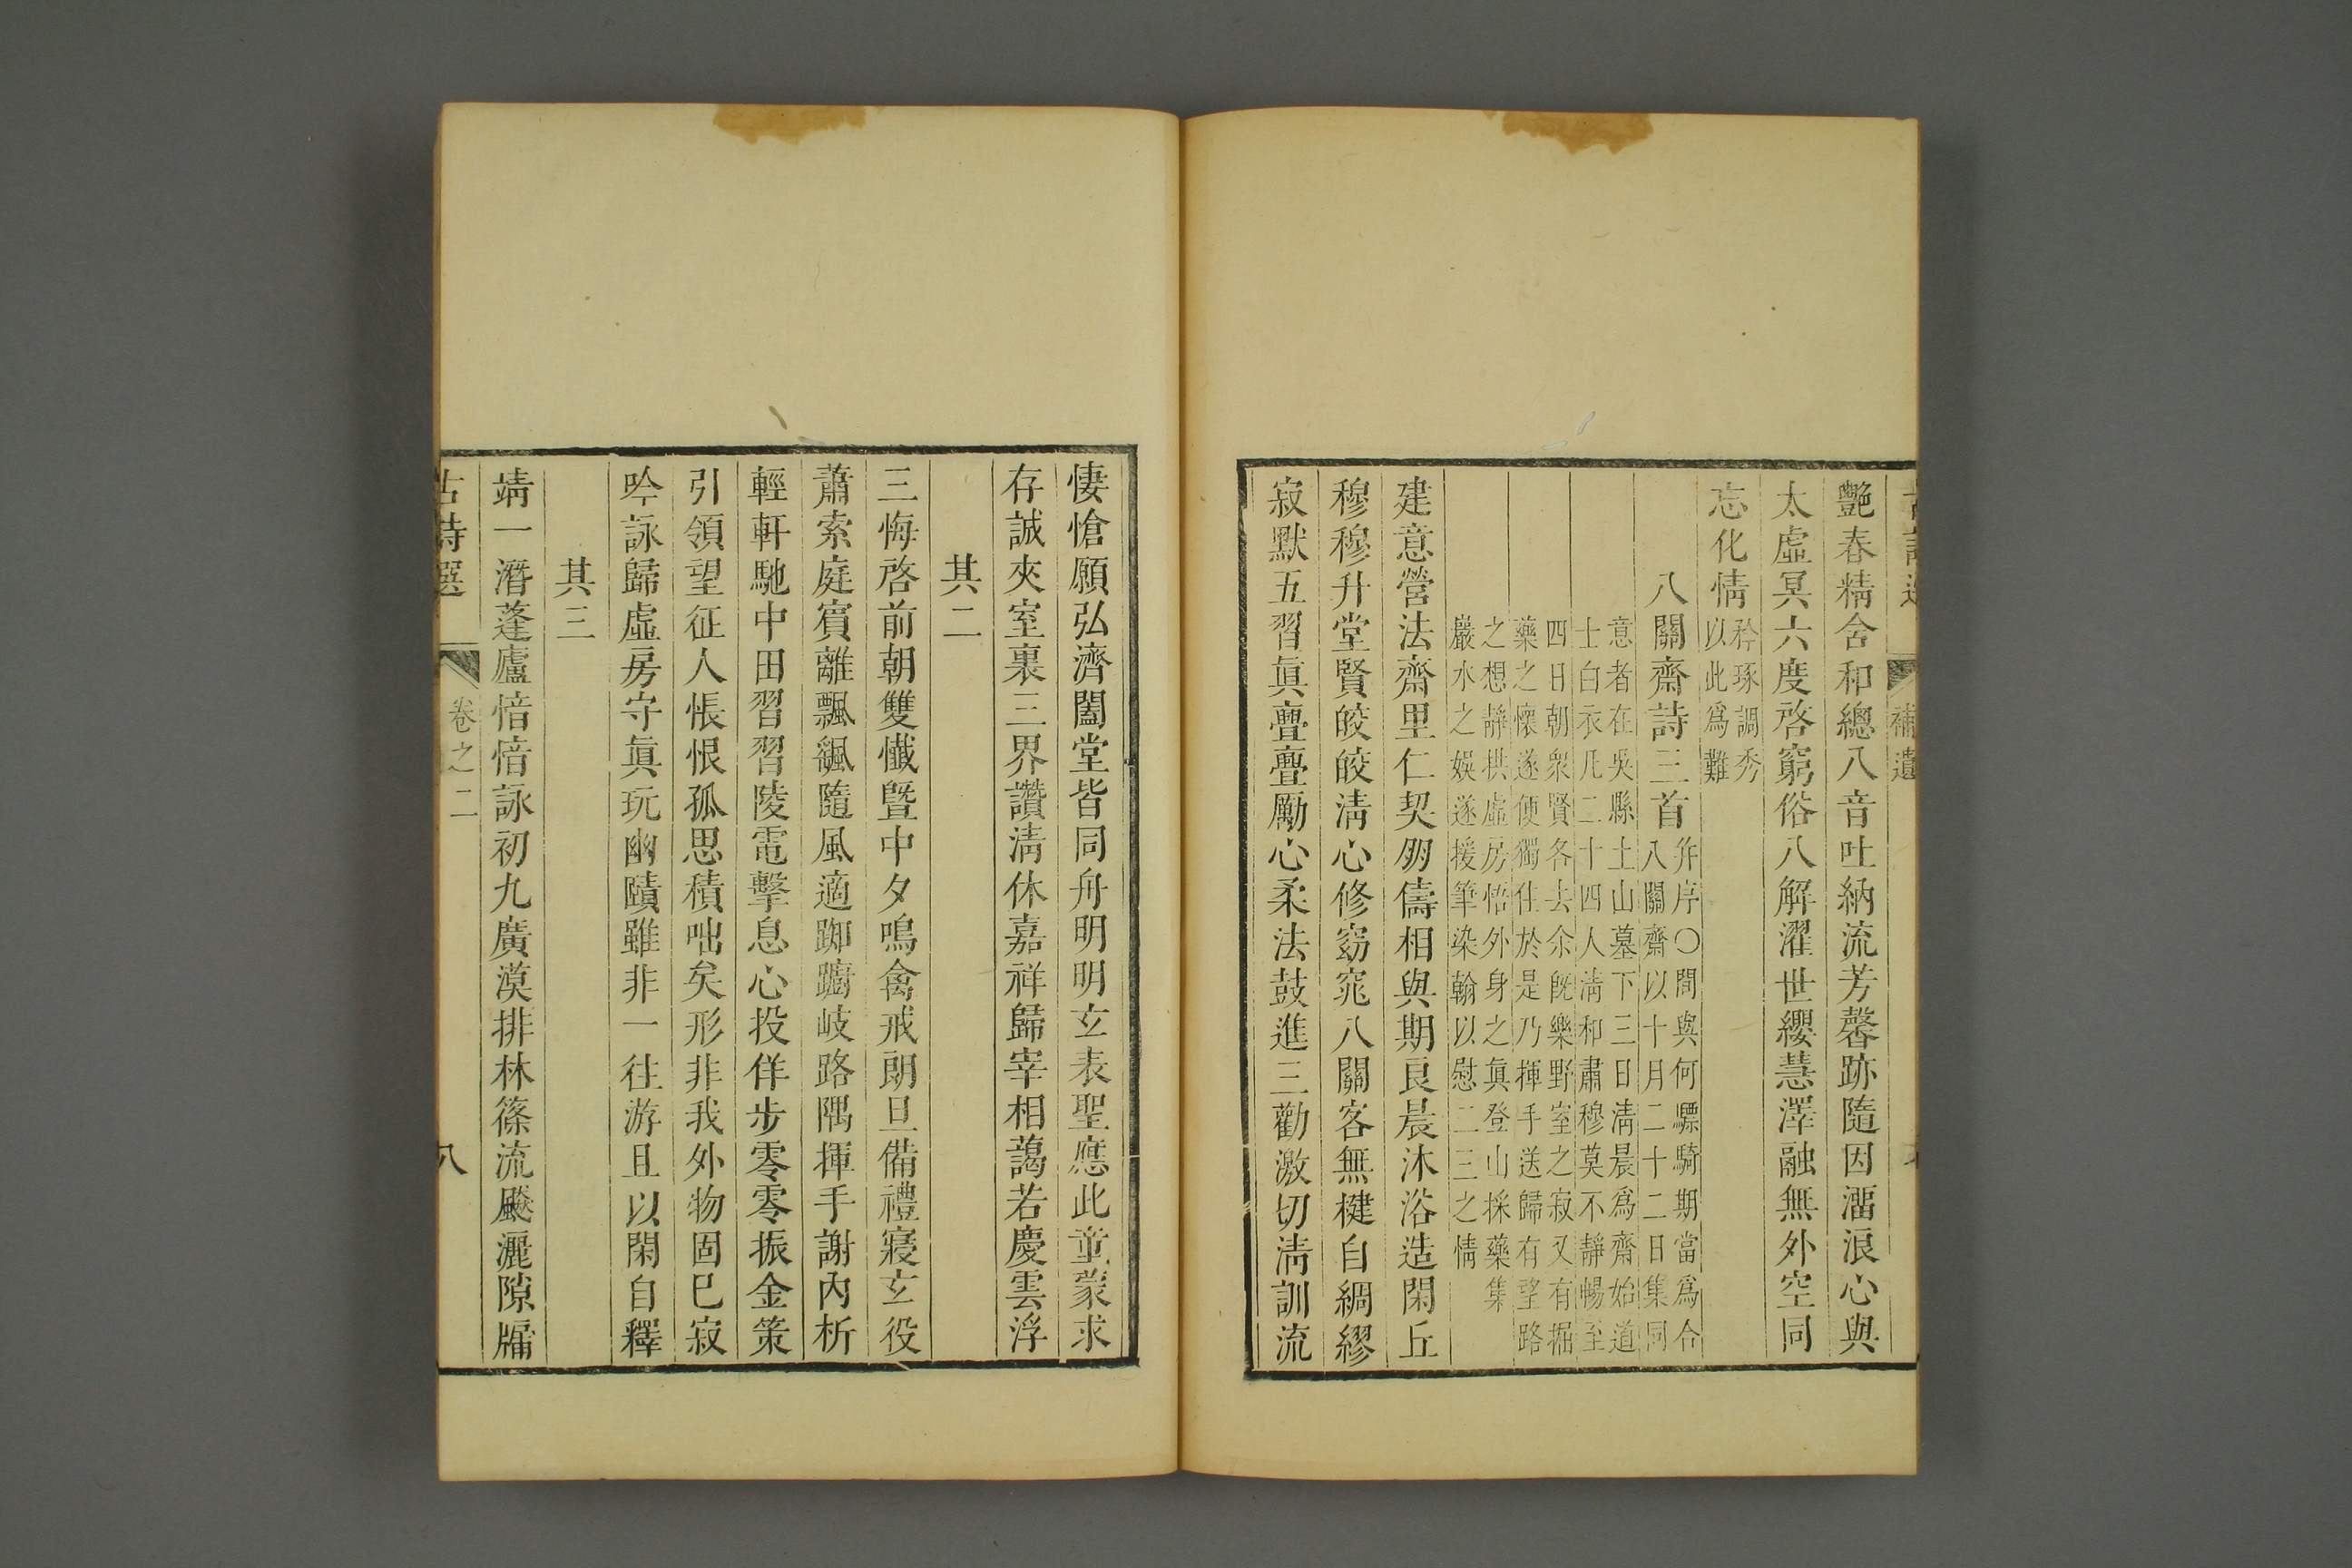 補遺
艷春精舍和總八音吐納流芳馨跡隨因溜浪心與
太虛冥六度啓窮俗八解濯世纓慧澤融無外空同
忘化情
矜琢調秀
以此爲難
八關齋詩三首
幷序〇間與何驃騎期當爲合
八關齋以十月二十二日集同
意者在吳縣土山墓下三日淸晨爲齋始道
士白衣凡二十四人淸和肅穆莫不靜暢至
四日朝衆賢各去余旣樂野室之寂又有掘
藥之懷遂便獨住於是乃揮手送歸有望路
之想靜拱虛房悟外身之眞登山採藥集
巖水之娛遂援筆染翰以慰二三之情
建意營法齋里仁契朋儔相與期良晨沐浴造閑丘
穆穆升堂賢皎皎淸心修窈窕八關客無楗自綢繆
寂默五習眞亹亹勵心柔法鼓進三勸激切淸訓流
悽愴願弘濟闔堂皆同舟明明玄表聖應此童蒙求
存誠夾室裏三界讚淸休嘉祥歸宰相藹若慶雲浮
其二
三悔啓前朝雙懺曁中夕鳴禽戒朗旦備禮寢玄役
蕭索庭賓離飄颻隨風適踟躕岐路隅揮手謝內析
輕軒馳中田習習陵電擊息心投佯步零零振金策
引領望征人悵恨孤思積咄矣形非我外物固已寂
吟詠歸虛房守眞玩幽賾雖非一往游且以閑自釋
其三
靖一潛蓬廬愔愔詠初九廣漠排林篠流飈灑隙牖
古詩選
卷之二
八